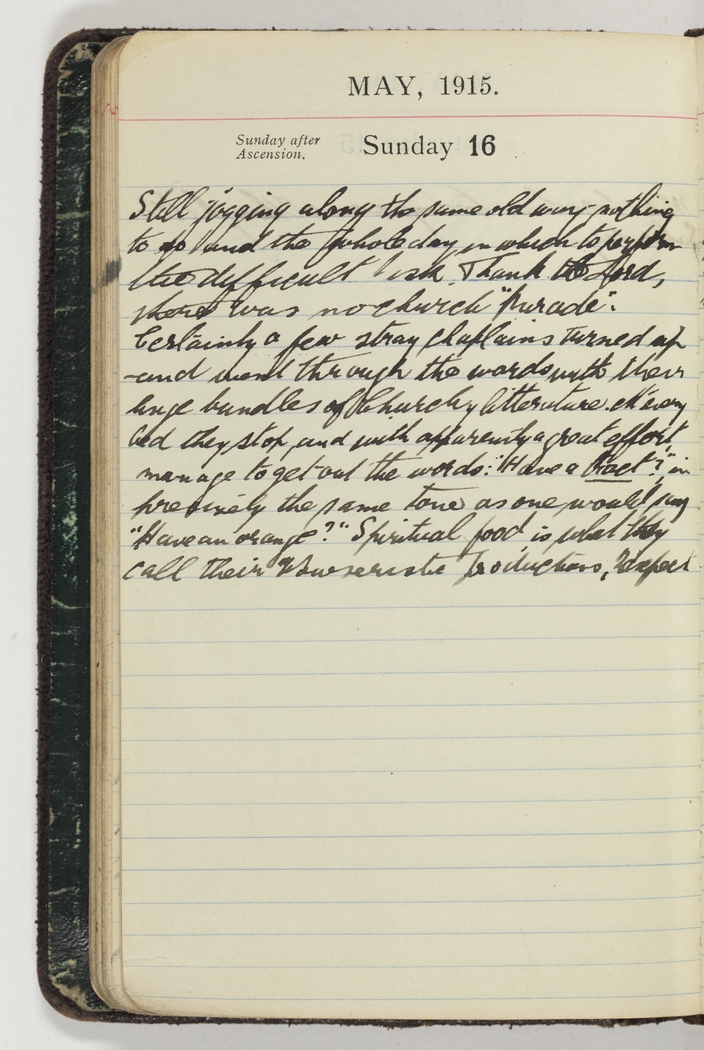 MAY, 1915.
Sunday after
Ascension.
Sunday 16
Still jogging along the same old way nothing
to do and the whole day in which to perform
the difficult task. Thank the Lord,
there was no church "Parade".
Certainly a few stray chaplains turned up
and went through the wards with their
huge bundles of Churchy litterature. At every
bed they stop, and with apparently a great effort
manage to get out the words: "Have a tract?" in
precisely the same tone as one would say
"Have an orange?" Spiritual food is what they
call their productions, I expect